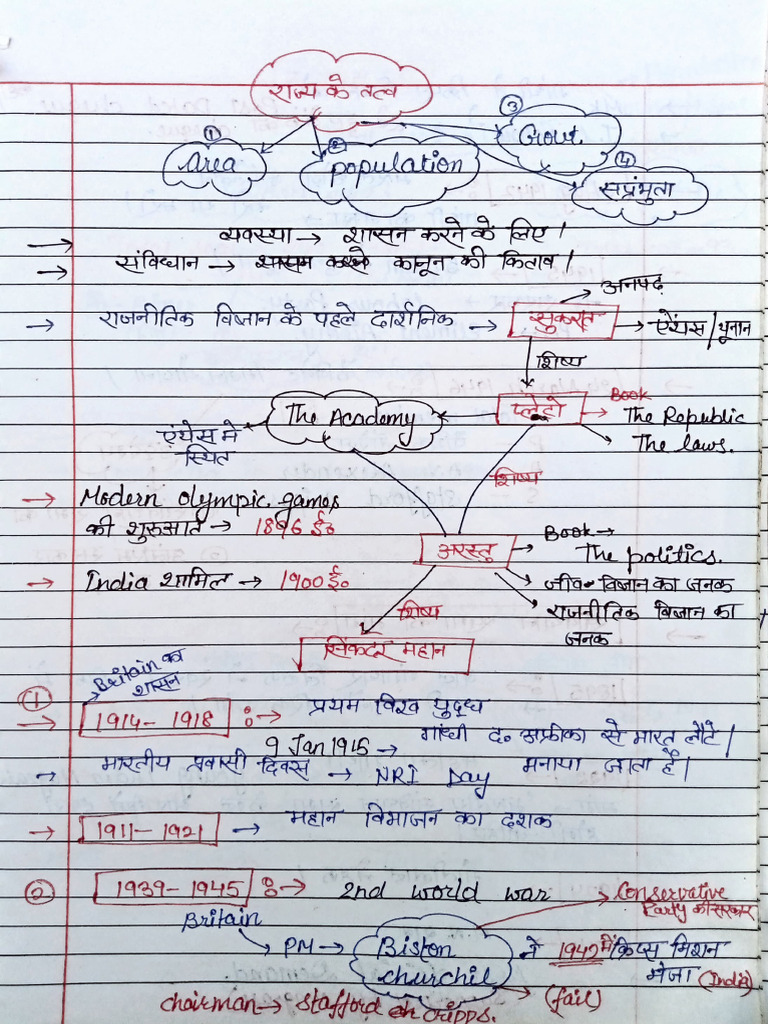 राज्य के तत्व
① Area
② population
③ Govt.
④ सप्रंभुता
→ व्यवस्था → शासन करने के लिए।
→ संविधान → कानून की किताब।
→ राजनीतिक विज्ञान के पहले दार्शनिक → सुकरात → ऐथेंस/यूनान
अनपढ़
शिष्य
The Academy
प्लेटो → Book The Republic
The laws.
एथेंस मे स्थित
शिष्य
→ Modern olympic games
की शुरूआत → 1896 ई०
अरस्तु → Book →
The politics.
→ India शामिल → 1900 ई०
जीव विज्ञान का जनक
राजनीतिक विज्ञान का
जनक
शिष्य
सिकंदर महान
Britain का
शासन
① → 1914-1918 :→ प्रथम विश्व युद्ध
9 Jan 1915 → गांधी द० अफ्रीका से भारत लौटे।
→ भारतीय प्रवासी दिवस → NRI Day मनाया जाता है।
→ 1911-1921 → महान विभाजन का दशक
② 1939-1945 :→ 2nd world war
Conservative
Party की सरकार
Britain
PM → Biston
churchil
ने 1942 में क्रिप्स मिशन
भेजा (India)
(fail)
chairman → stafford cripps.